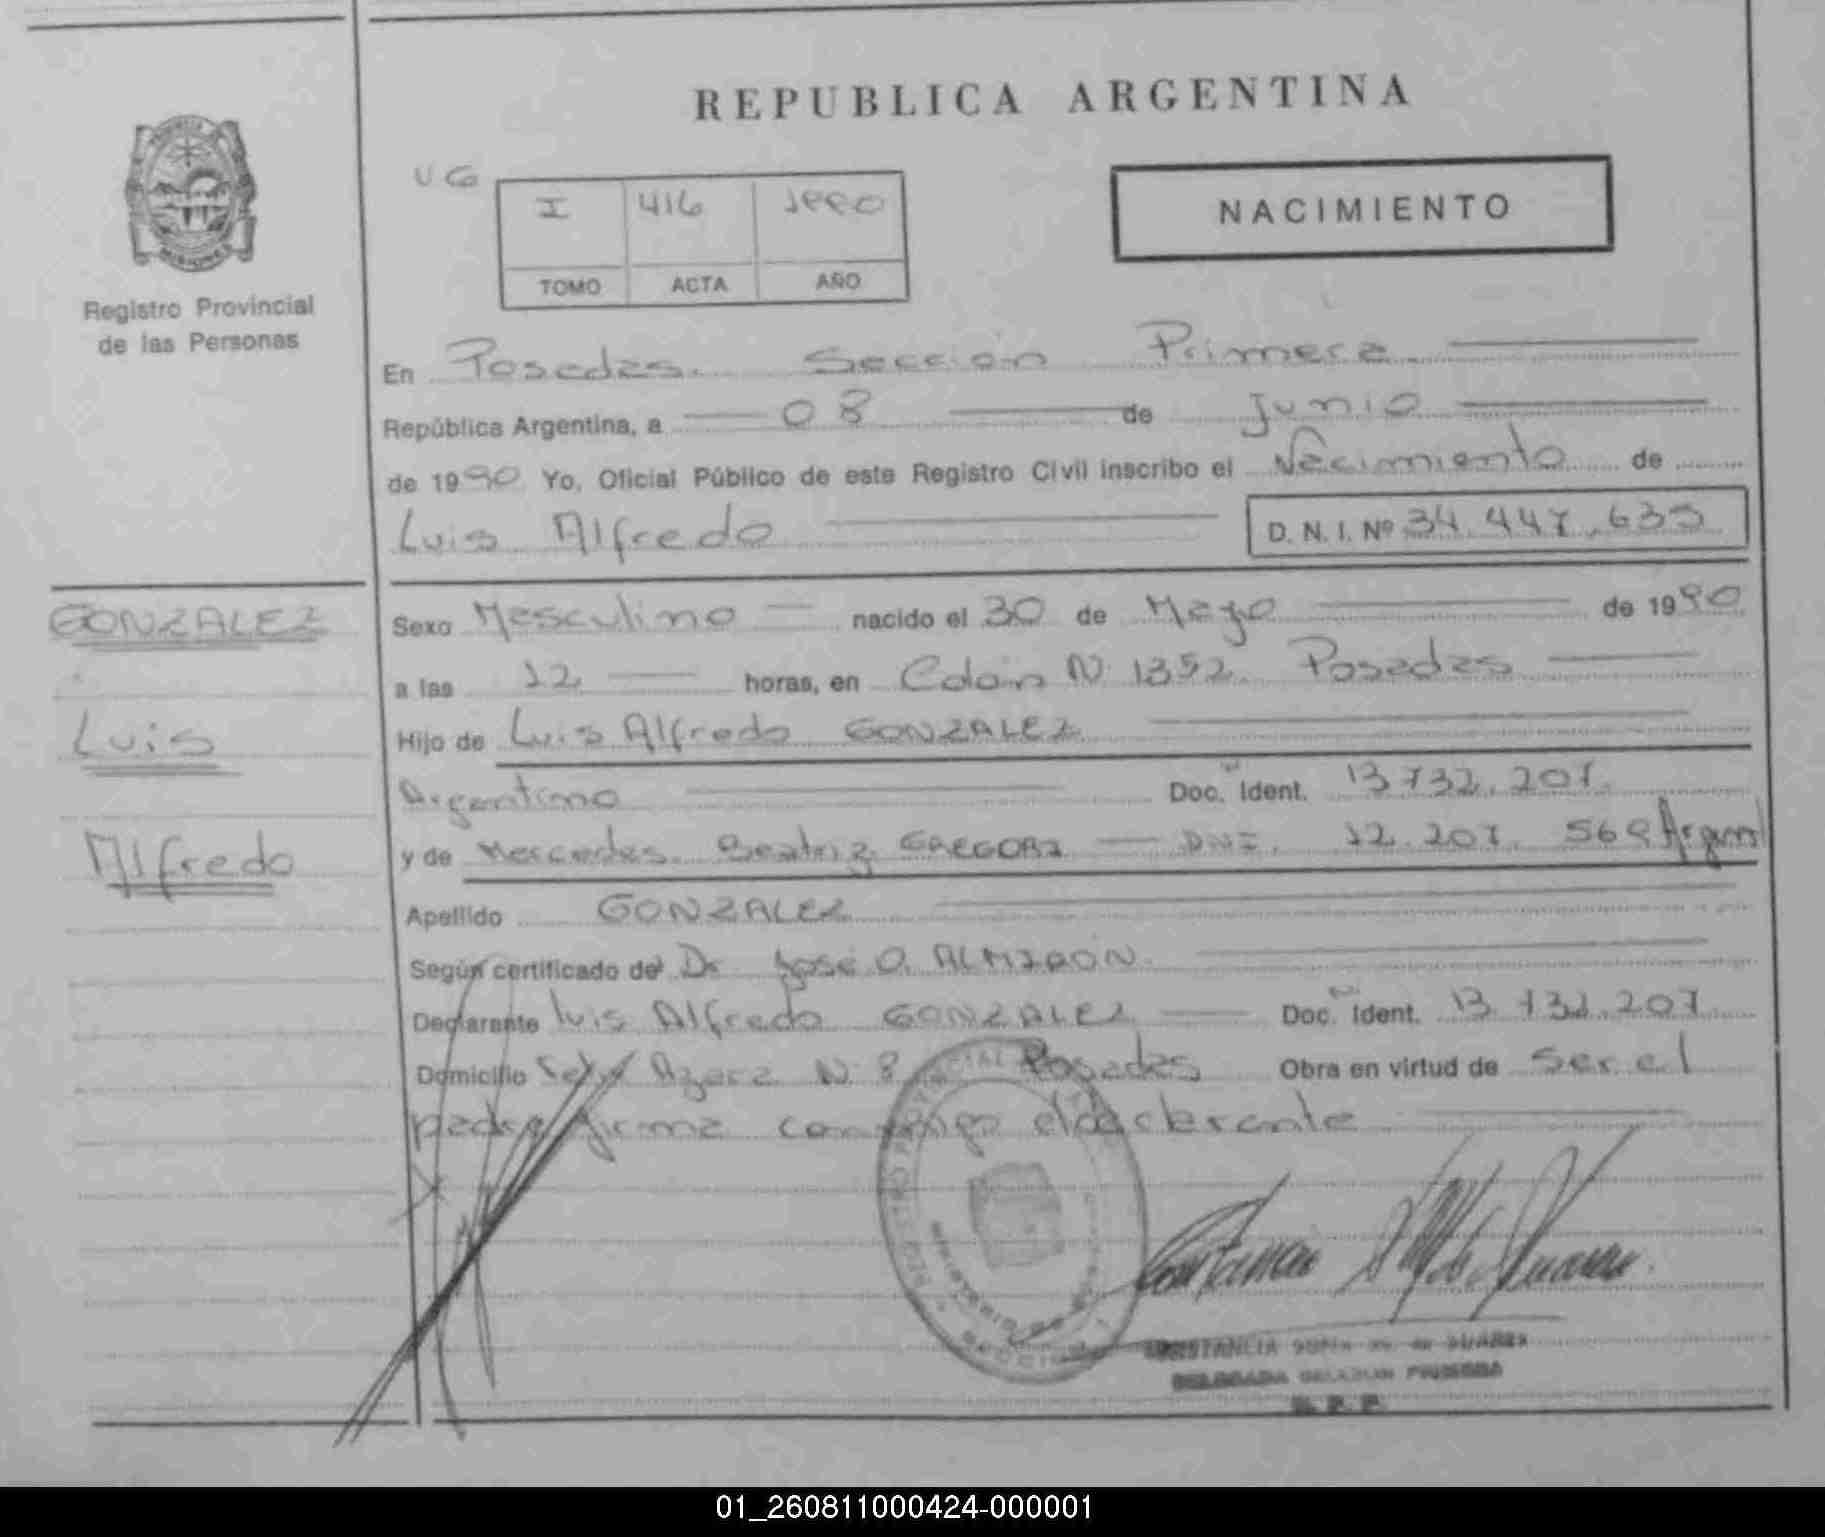 REPUBLICA ARGENTINA
Registro Provincial
de las Personas
UG
I 416 1990
TOMO ACTA AÑO
NACIMIENTO
En Posadas. Sección Primera
República Argentina, a 08 de Junio
de 1990 Yo, Oficial Público de este Registro Civil inscribo el Nacimiento de
Luis Alfredo D. N. I. Nº 34.447.635
GONZALEZ
Luis
Alfredo
Sexo Masculino nacido el 30 de Mayo de 1990
a las 12 horas, en Colón N 1352. Posadas
Hijo de Luis Alfredo GONZALEZ
Argentino Doc. Ident. 13.732.207.
y de Mercedes Beatriz GREGORI DNI. 12.207.569 Argent
Apellido GONZALEZ
Según certificado de Dr José O. ALMIRON.
Declarante Luis Alfredo GONZALEZ Doc. Ident. 13.732.207
Domicilio Azara N 8 Posadas Obra en virtud de ser el
padre firma conmigo el declarante
REGISTRO PROVINCIAL
MINISTERIO DE
SECCION
CONSTANCIA DE SUAREZ
DELEGADA SECCION PRIMERA
R. P. P.
01_260811000424-000001